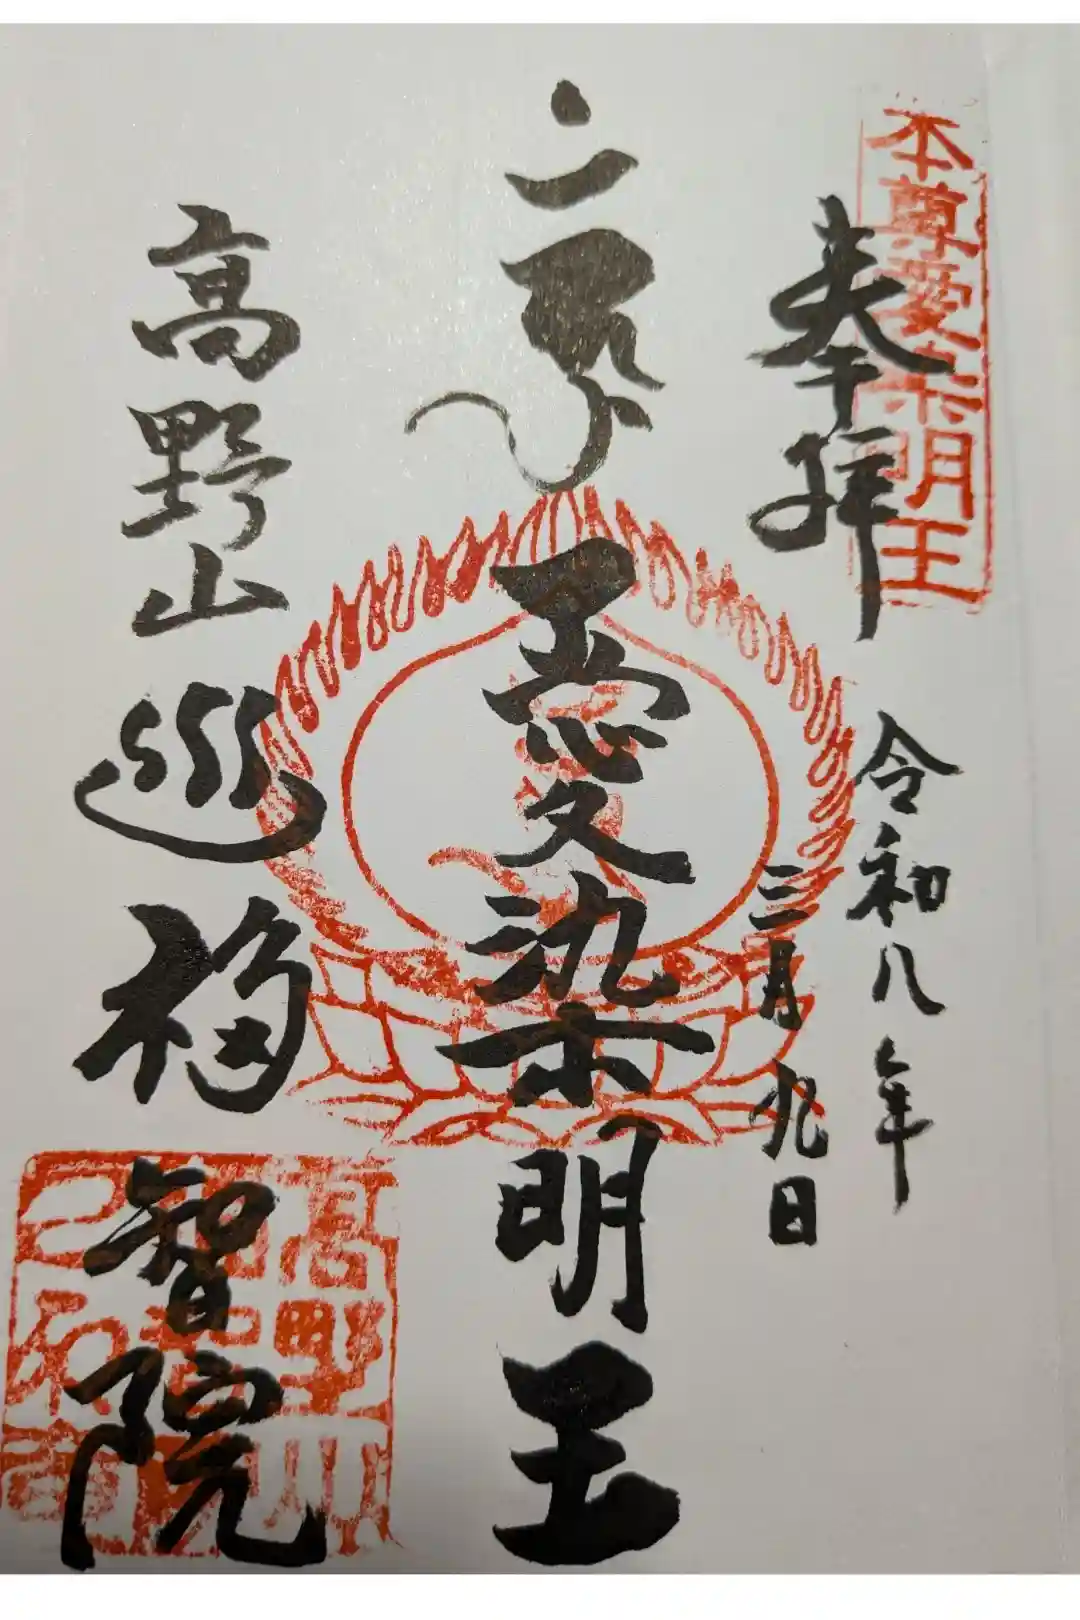 本尊愛染明王
奉拝
令和八年
三月九日
愛染明王
高野山 巡福
智院
高野山